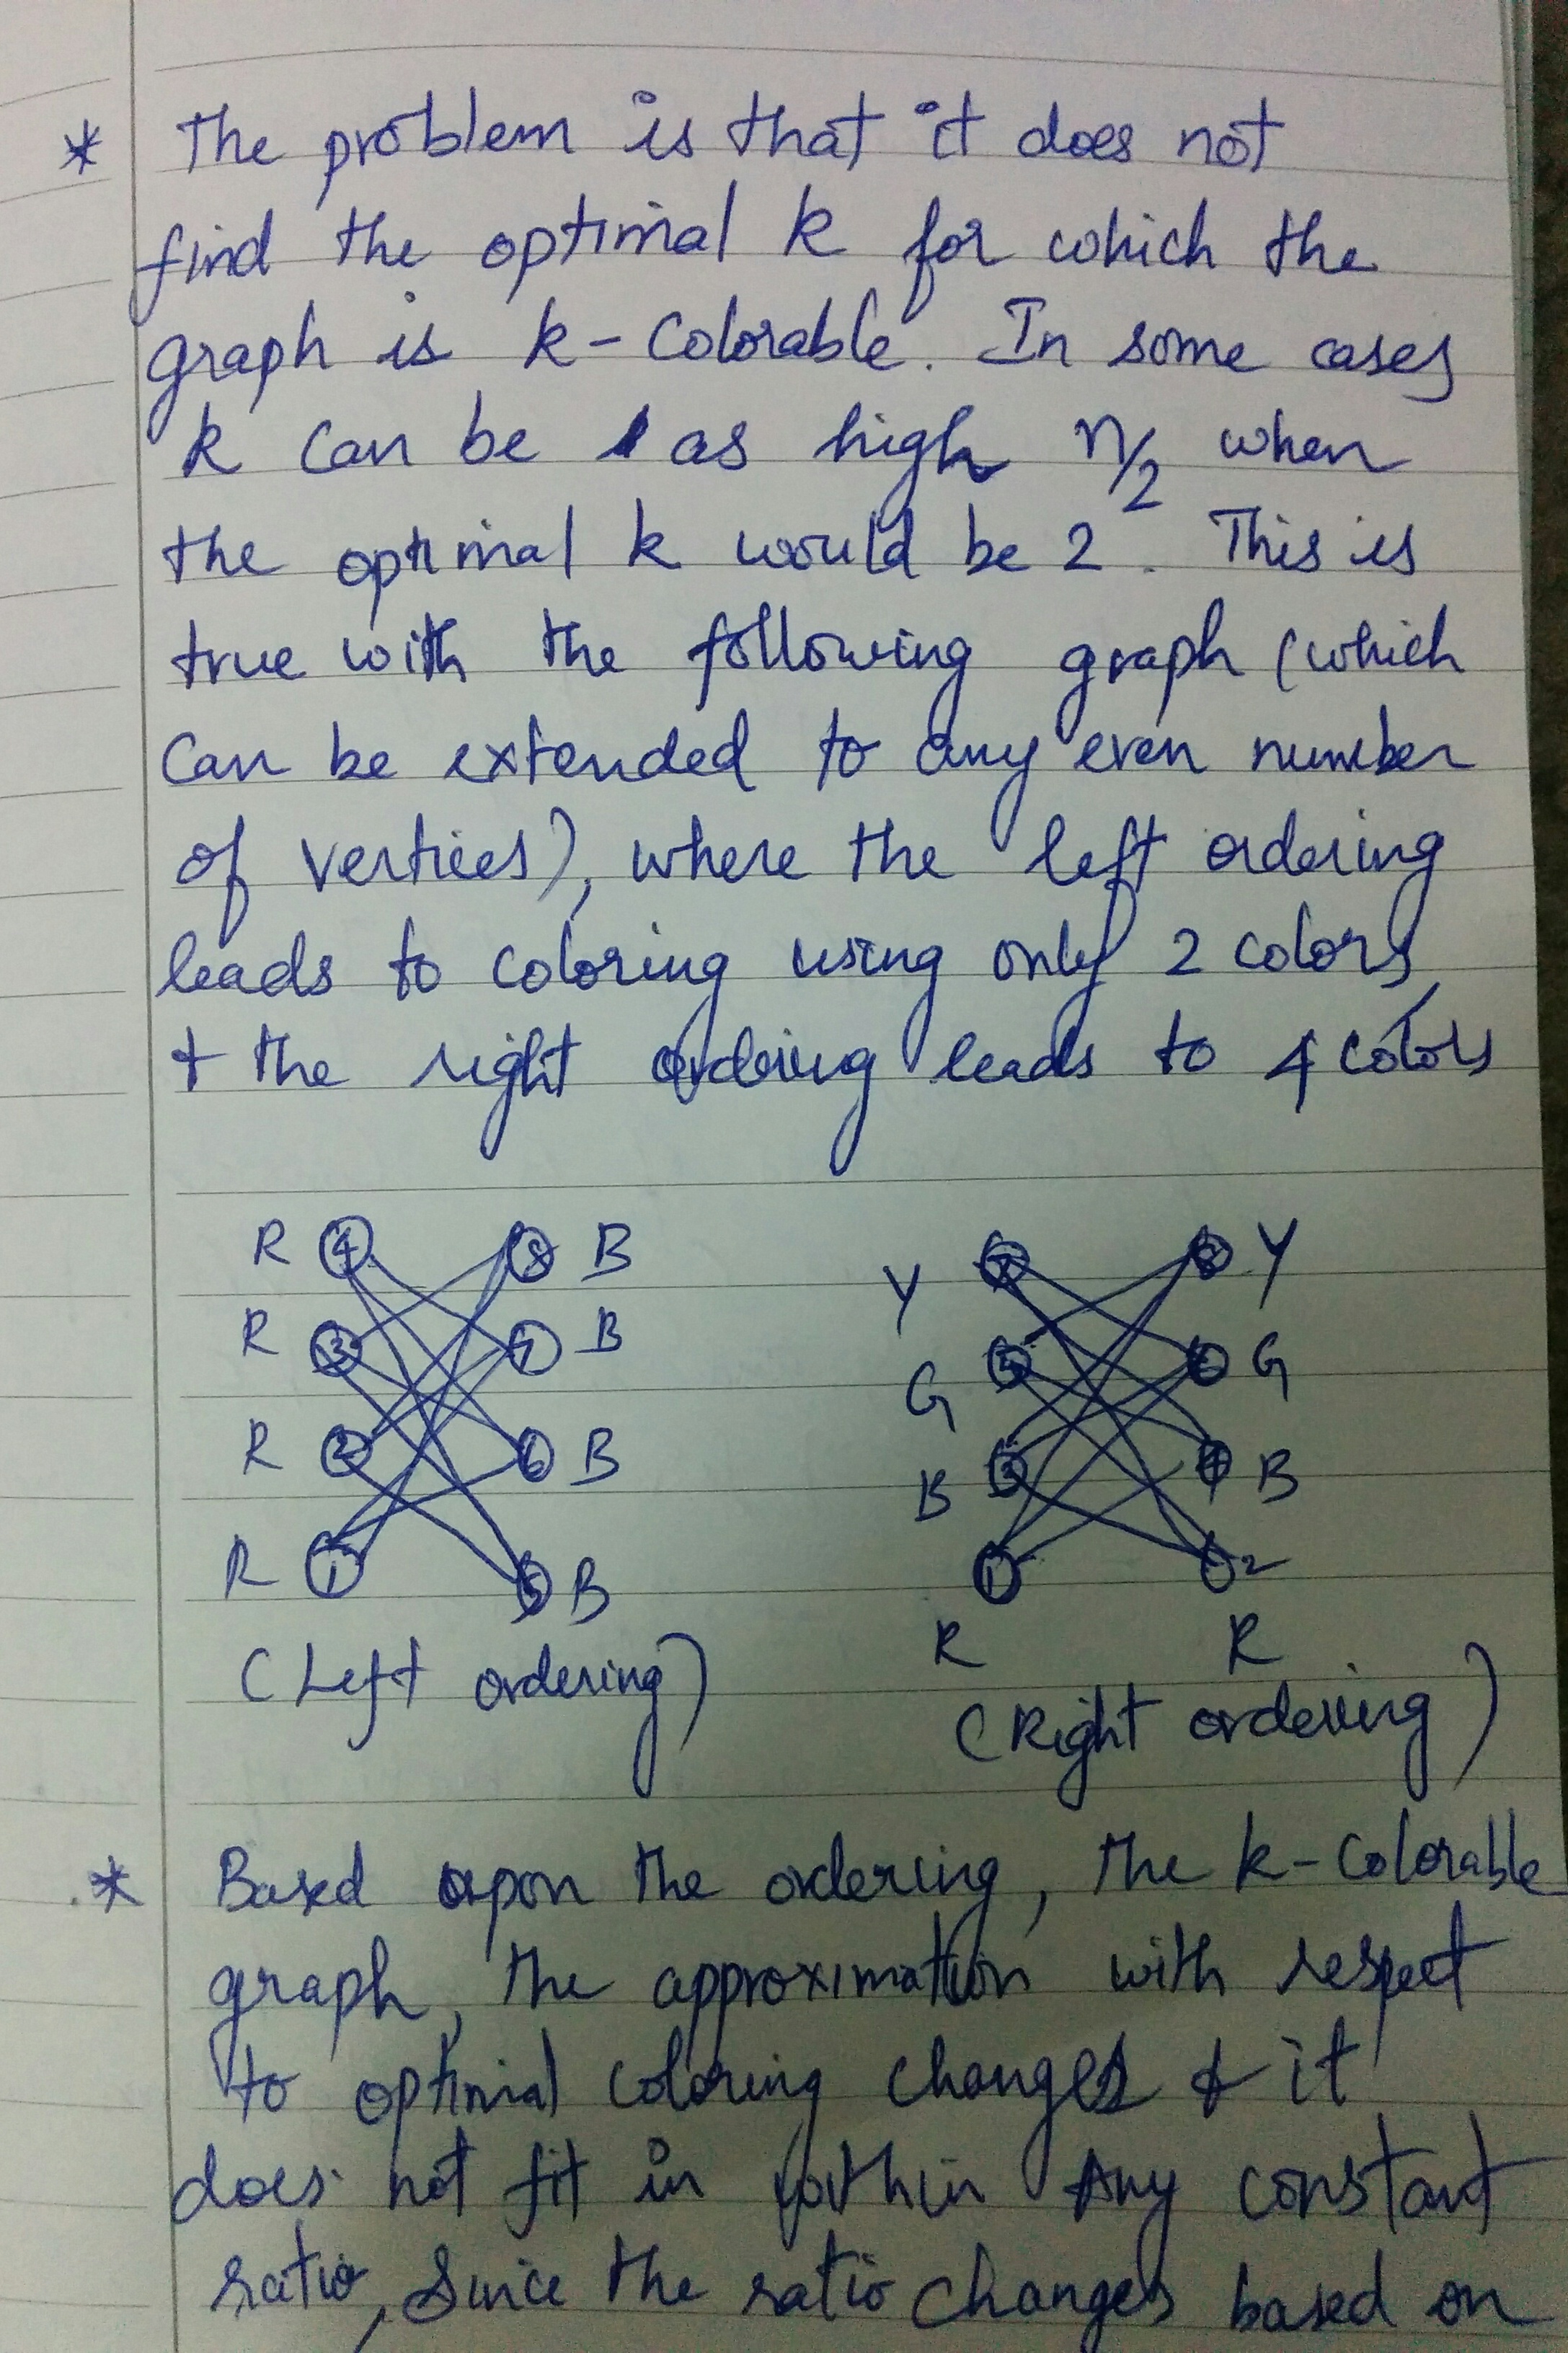 * The problem is that it does not
find the optimal k for which the
graph is k-Colorable. In some cases
k can be as high n/2 when
the optimal k would be 2. This is
true with the following graph (which
Can be extended to any even number
of vertices), where the left ordering
leads to coloring using only 2 colors,
+ the right ordering leads to 4 colors
R 4 8 B
R 3 7 B
R 2 6 B
R 1 5 B
(Left ordering)
Y 7 8 Y
G 5 6 G
B 3 4 B
1 2
R R
(Right ordering)
* Based upon the ordering, the k-Colorable
graph, the approximation with respect
to optimal coloring changes & it
does not fit in within any constant
ratio, Since the ratio changes based on